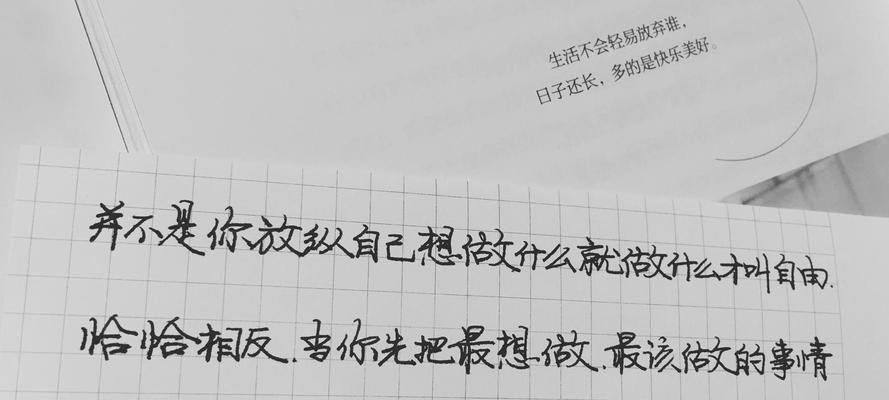 生活不会轻易放弃谁，
日子还长，多的是快乐美好。
并不是你放纵自己想做什么就做什么才叫自由.
恰恰相反.当你先把最想做.最该做的事情